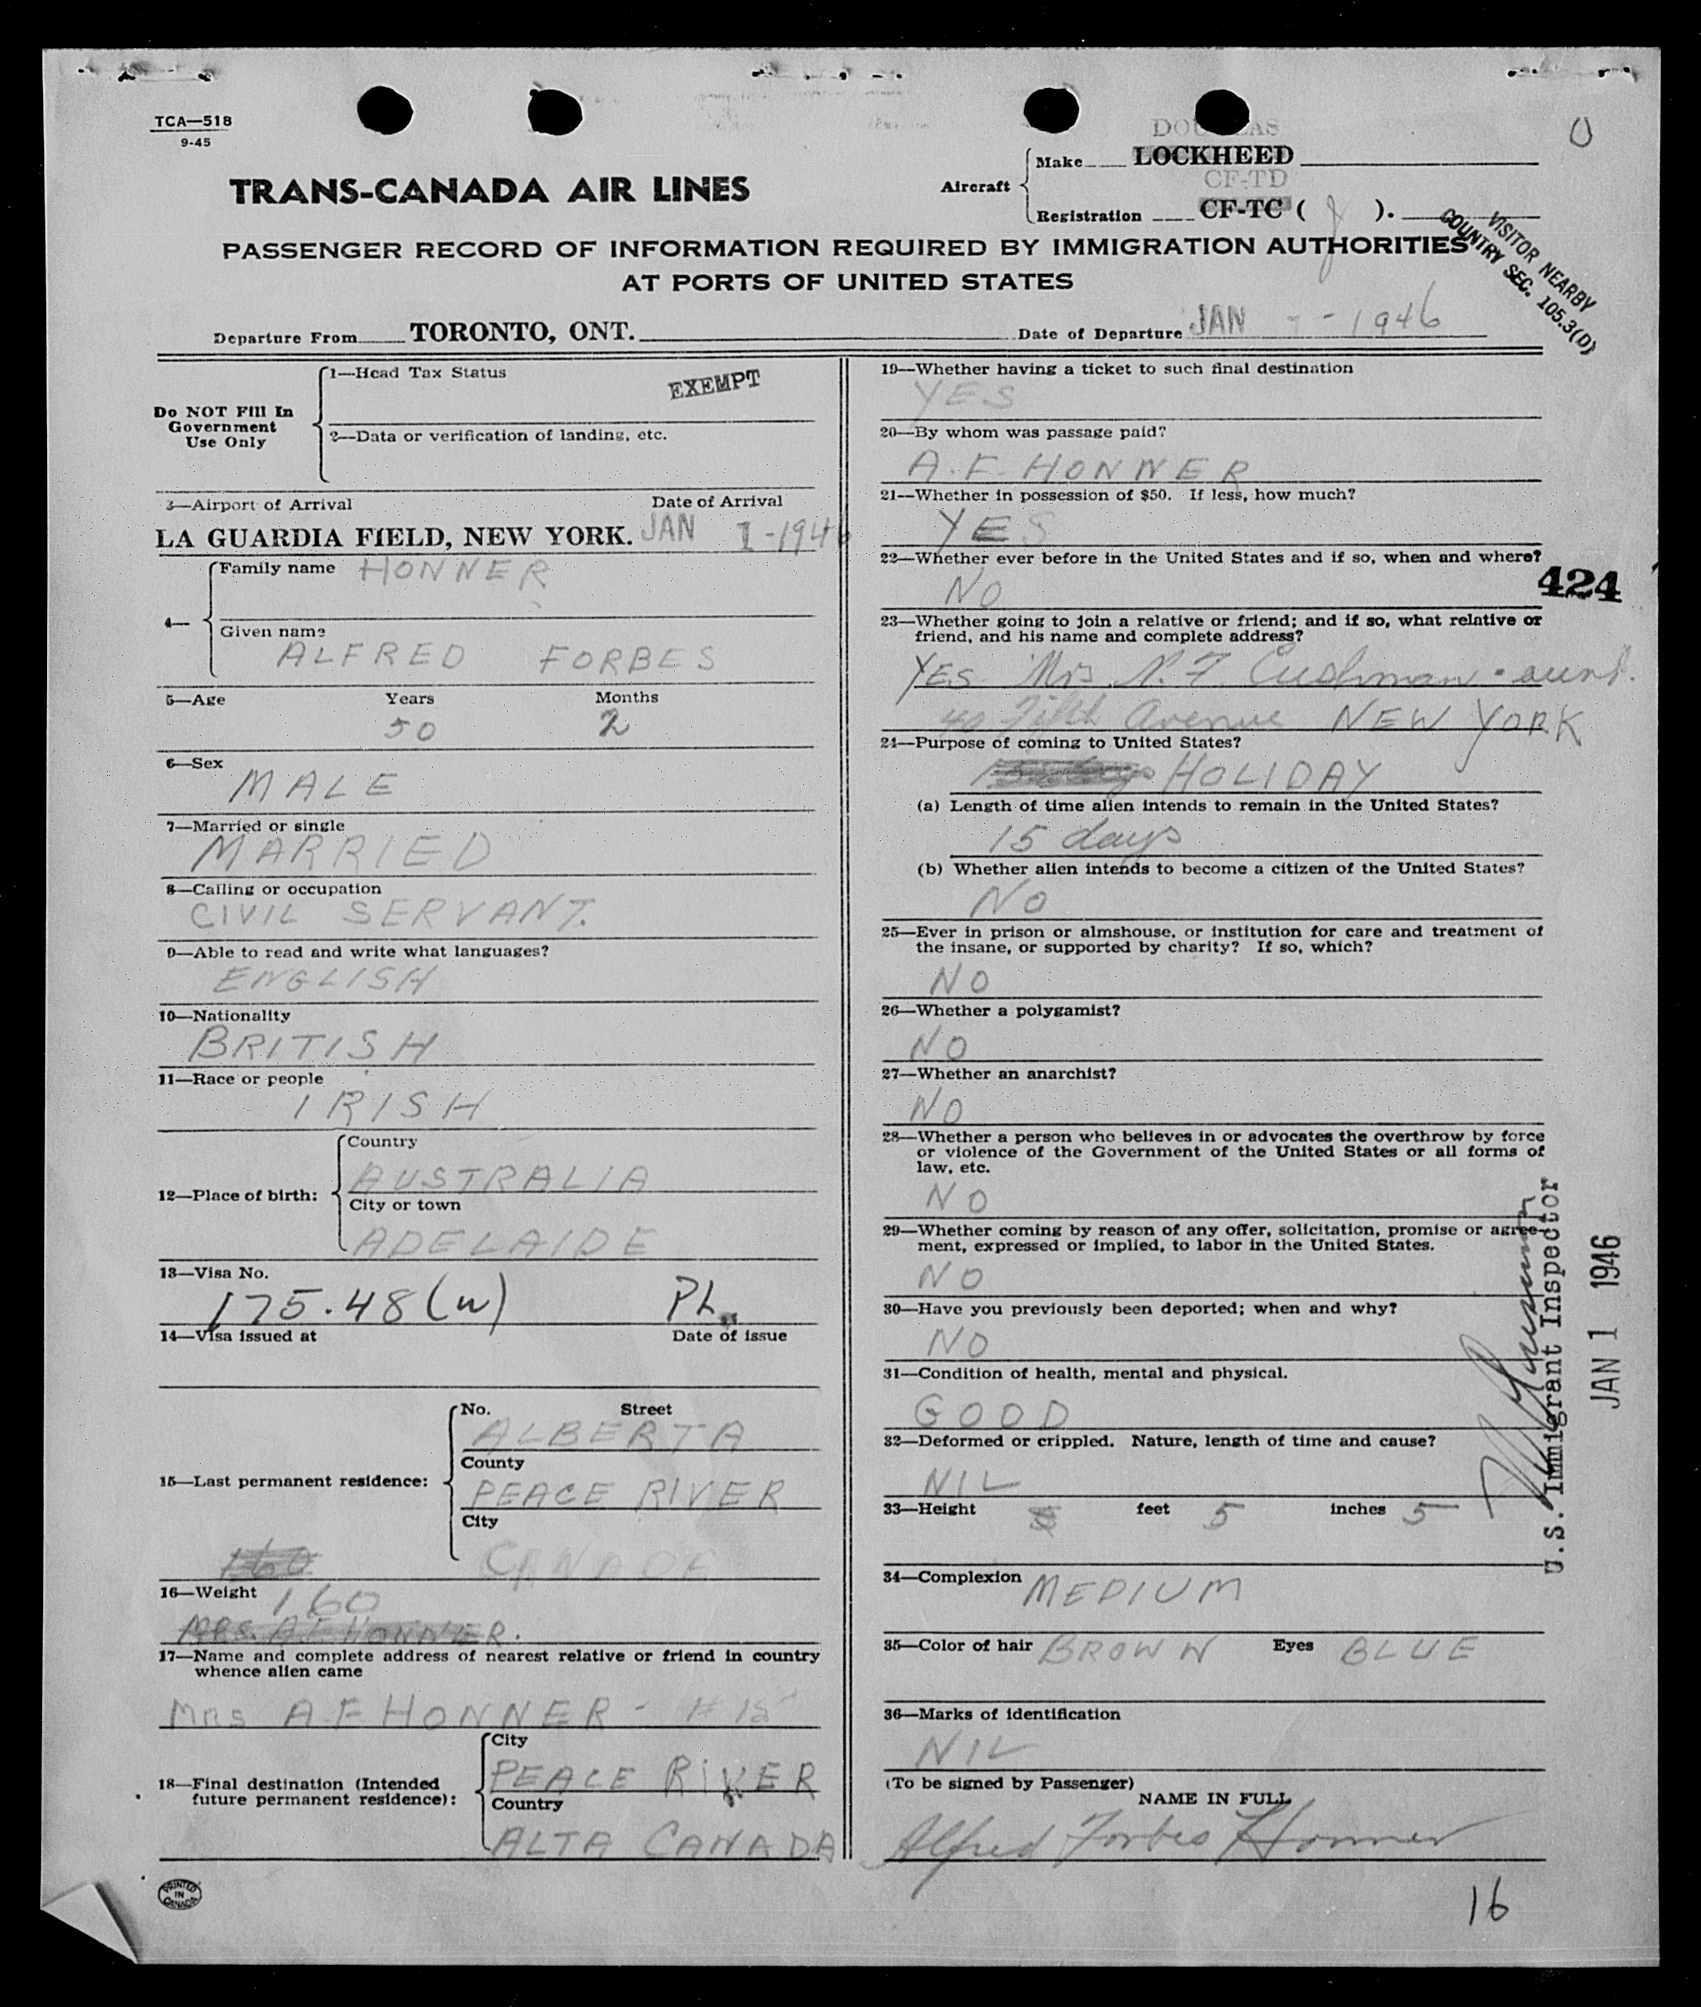 TCA—518
9-45
DOUGLAS
Make LOCKHEED
TRANS-CANADA AIR LINES
Aircraft
CF-TD
Registration CF-TC ( ).
VISITOR NEARBY
COUNTRY SEC. 105.3(D)
PASSENGER RECORD OF INFORMATION REQUIRED BY IMMIGRATION AUTHORITIES
AT PORTS OF UNITED STATES
Departure From TORONTO, ONT. Date of Departure JAN 1946
Do NOT Fill In
Government
Use Only
1—Head Tax Status
EXEMPT
2—Data or verification of landing, etc.
3—Airport of Arrival Date of Arrival
LA GUARDIA FIELD, NEW YORK. JAN 1-1946
4—
Family name HONNER
Given name
ALFRED FORBES
5—Age Years Months
50 2
6—Sex
MALE
7—Married or single
MARRIED
8—Calling or occupation
CIVIL SERVANT.
9—Able to read and write what languages?
ENGLISH
10—Nationality
BRITISH
11—Race or people
IRISH
12—Place of birth:
Country
AUSTRALIA
City or town
ADELAIDE
13—Visa No.
175.48(w) PL.
14—Visa issued at Date of issue
15—Last permanent residence:
No. Street
ALBERTA
County
PEACE RIVER
City
CANADA
160
16—Weight 160
MRS. A.F. HONNER.
17—Name and complete address of nearest relative or friend in country
whence alien came
Mrs A.F HONNER -
18—Final destination (Intended
future permanent residence):
City
PEACE RIVER
Country
ALTA CANADA
PRINTED
IN
CANADA
19—Whether having a ticket to such final destination
YES
20—By whom was passage paid?
A.F. HONNER
21—Whether in possession of $50. If less, how much?
YES
22—Whether ever before in the United States and if so, when and where?
NO
424
23—Whether going to join a relative or friend; and if so, what relative or
friend, and his name and complete address?
YES Mrs N.F. Cushman - aunt.
40 Fifth Avenue NEW YORK
24—Purpose of coming to United States?
HOLIDAY
(a) Length of time alien intends to remain in the United States?
15 days
(b) Whether alien intends to become a citizen of the United States?
NO
25—Ever in prison or almshouse, or institution for care and treatment of
the insane, or supported by charity? If so, which?
NO
26—Whether a polygamist?
NO
27—Whether an anarchist?
NO
28—Whether a person who believes in or advocates the overthrow by force
or violence of the Government of the United States or all forms of
law, etc.
NO
29—Whether coming by reason of any offer, solicitation, promise or agree-
ment, expressed or implied, to labor in the United States.
NO
30—Have you previously been deported; when and why?
NO
31—Condition of health, mental and physical.
GOOD
32—Deformed or crippled. Nature, length of time and cause?
NIL
33—Height feet 5 inches 5
34—Complexion MEDIUM
35—Color of hair BROWN Eyes BLUE
36—Marks of identification
NIL
(To be signed by Passenger)
NAME IN FULL
Alfred Forbes Honner
U.S. Immigrant Inspector
JAN 1 1946
16